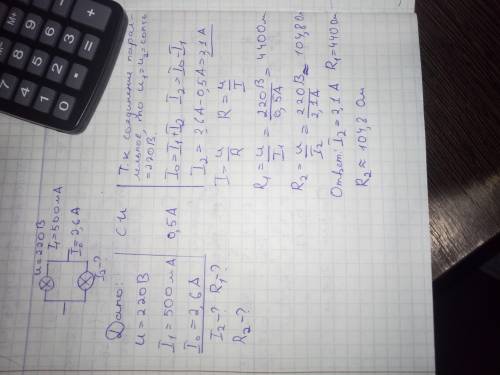 u=220В
I₁=500мА
I₀=2,6А
I₂-?
Дано:
u=220В
I₁=500мА
I₀=2,6А
I₂-? R₁-?
R₂-?
СИ
0,5А
Т.к соединение парал-
лельное, то u₁=u₂=const
=220В.
I₀=I₁+I₂ I₂=I₀-I₁
I₂=2,6А-0,5А=2,1А
I=u/R R=u/I
R₁=u/I₁=220В/0,5А=440Ом
R₂=u/I₂=220В/2,1А≈104,8Ом
Ответ: I₂=2,1А R₁=440Ом
R₂≈104,8 Ом
M+
9
8
6
5
3
2
0
+
=